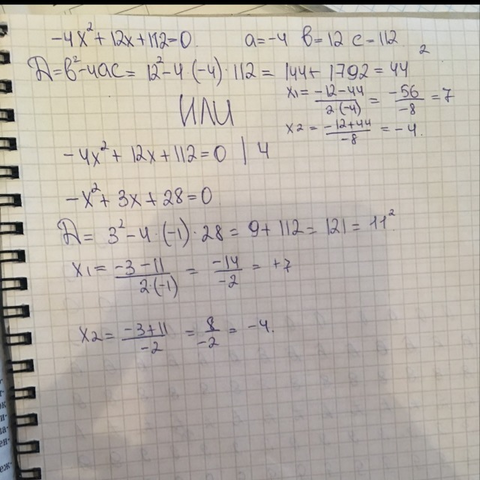 -4x² + 12x + 112 = 0. a = -4 b = 12 c - 112
D = b² - 4ac = 12² - 4 (-4) · 112 = 144 + 1792 = 44²
x1 = (-12-44)/(2·(-4)) = (-56)/(-8) = 7
x2 = (-12+44)/(-8) = -4.
ИЛИ
-4x² + 12x + 112 = 0 | 4
-x² + 3x + 28 = 0
D = 3² - 4 · (-1) · 28 = 9 + 112 = 121 = 11²
x1 = (-3-11)/(2·(-1)) = (-14)/(-2) = +7
x2 = (-3+11)/(-2) = 8/(-2) = -4.